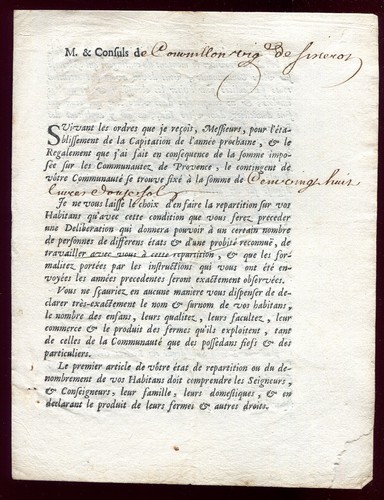 M. & Consuls de Cournillon vig.^e de Sisteron
SUivant les ordres que je reçois, Messieurs, pour l'éta-
blissement de la Capitation de l'année prochaine, & le
Regalement que j'ai fait en consequence de la somme impo-
sée sur les Communautez de Provence, le contingent de
vôtre Communauté se trouve fixé à la somme de Cent cinq huit
livres douze sols
Je ne vous laisse le choix d'en faire la repartition sur vos
Habitans qu'avec cette condition que vous ferez preceder
une Deliberation qui donnera pouvoir à un certain nombre
de personnes de differens états & d'une probité reconnuë, de
travailler avec vous à cette repartition, & que les for-
malitez portées par les instructions qui vous ont été
envoyées les années precedentes seront exactement observées.
Vous ne sçauriez en aucune maniere vous dispenser de de-
clarer très-exactement le nom & surnom de vos habitans,
le nombre des enfans, leurs qualitez, leurs facultez, leur
commerce & le produit des fermes qu'ils exploitent, tant
de celles de la Communauté que des possedans fiefs & des
particuliers.
Le premier article de vôtre état de repartition ou du de-
nombrement de vos Habitans doit comprendre les Seigneurs,
& Conseigneurs, leur famille, leurs domestiques, & en
declarant le produit de leurs fermes & autres droits.